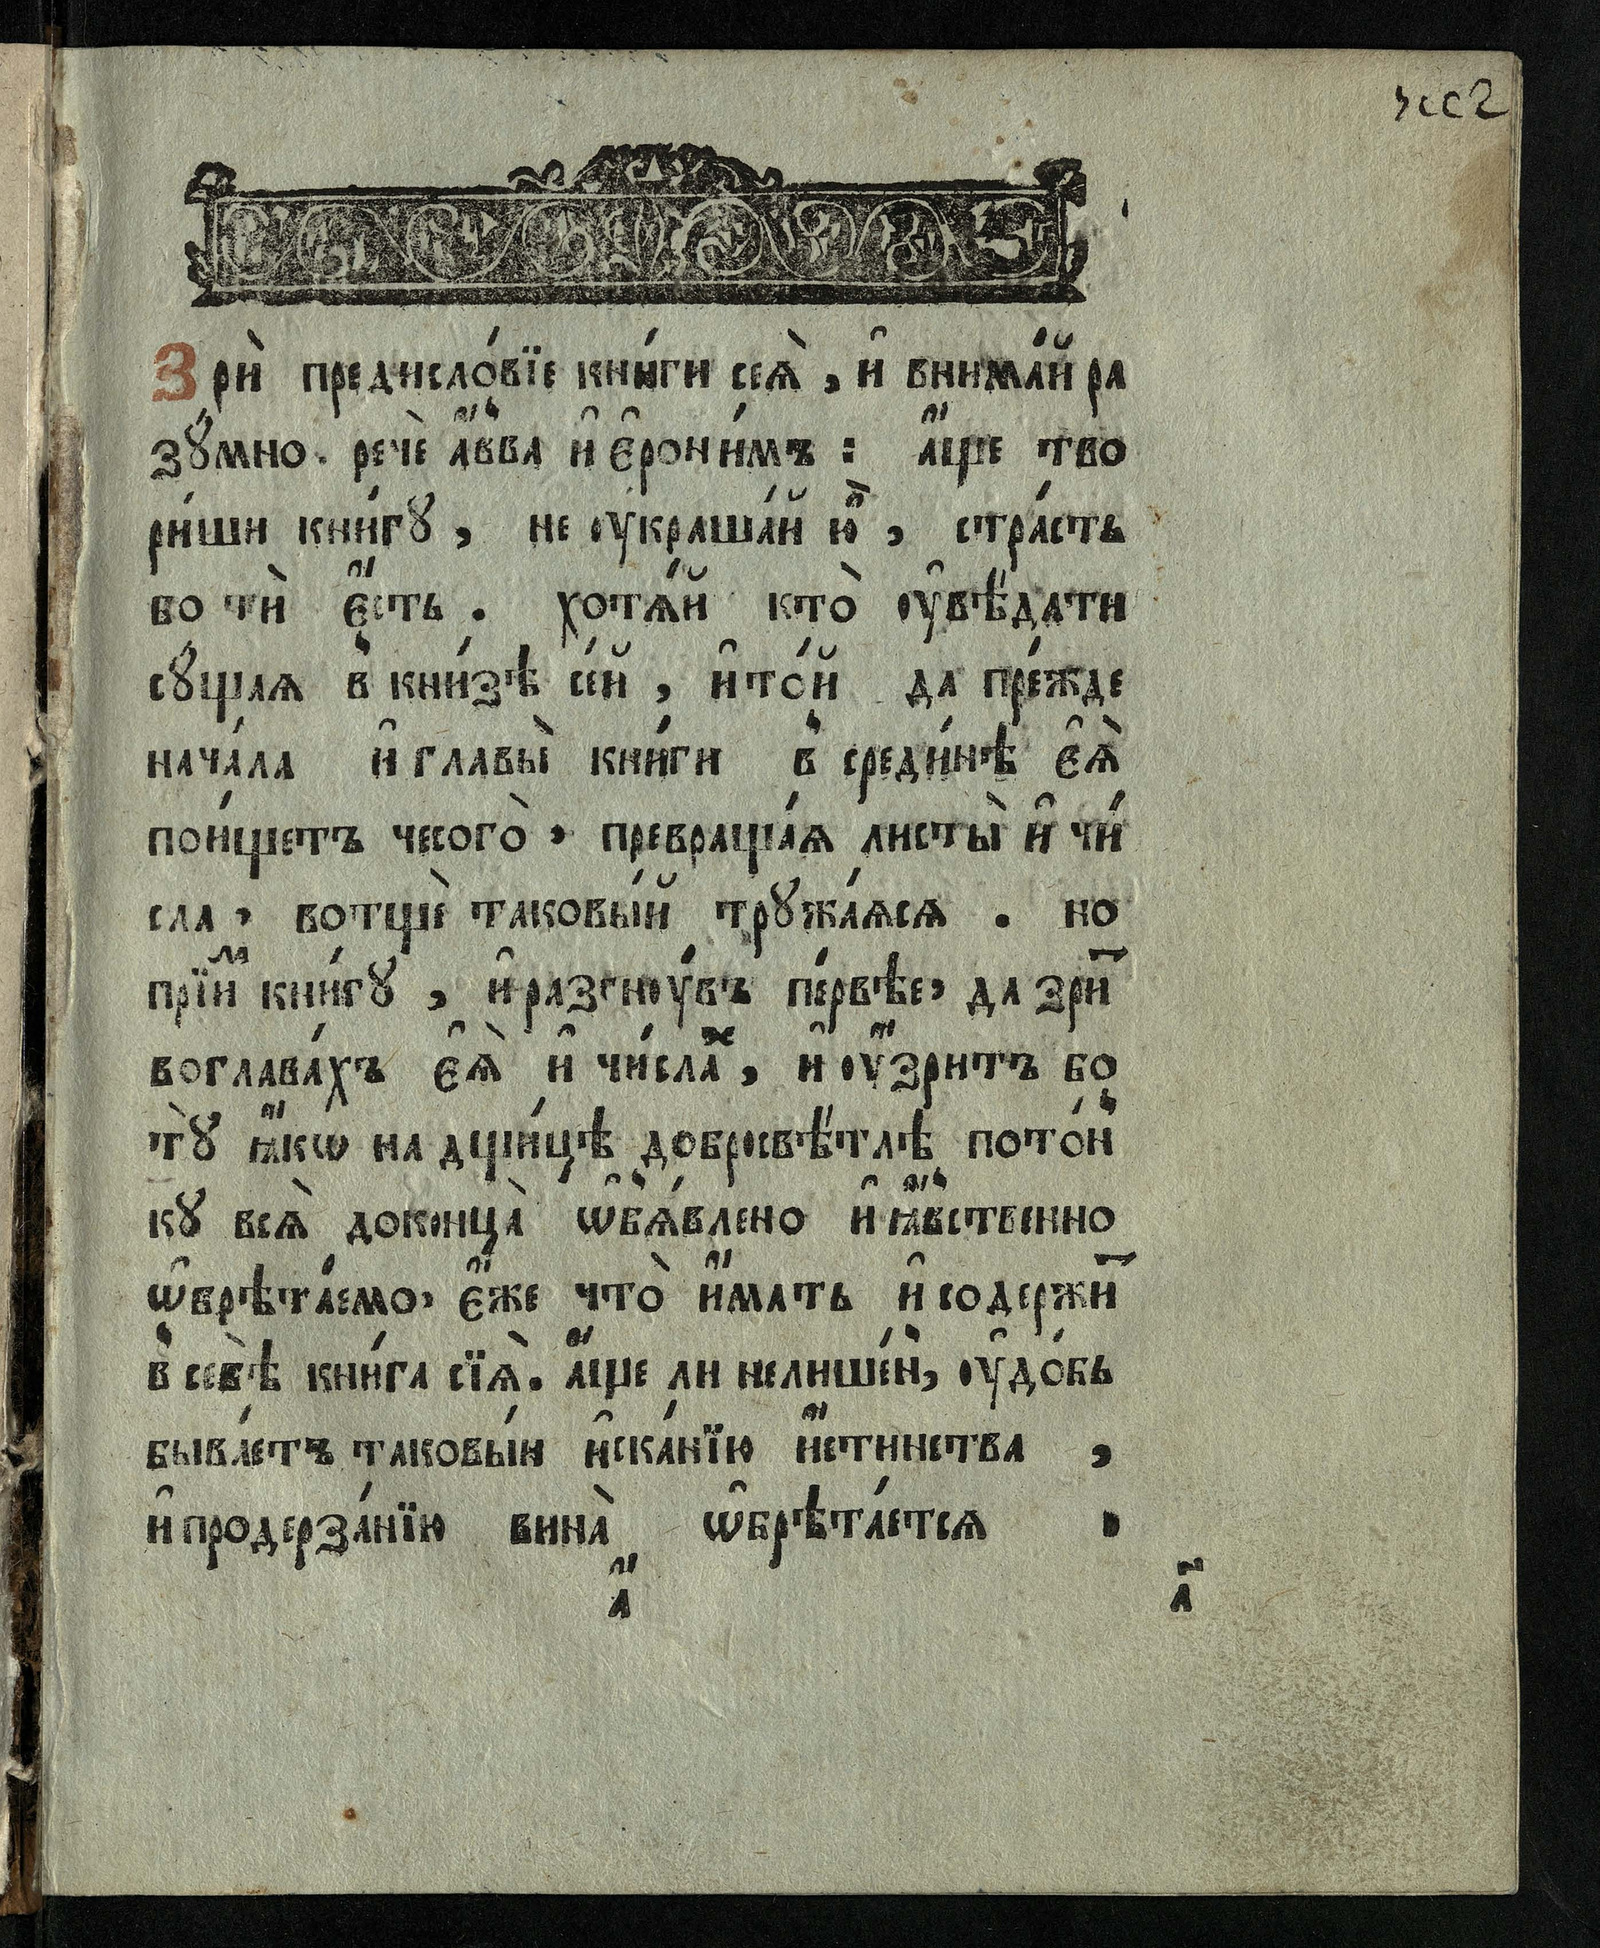 Зрѝ предисло́вїе кни́ги сеѧ̀, и҆ внима́й ра
зꙋ́мно. речѐ а҆́вва и҆ є҆рони́мъ: а҆́ще тво
ри́ши кни́гꙋ, не ᲂукраша́й ю҆̀, стра́сть
бо тѝ є҆́сть. хотѧ́й кто̀ ᲂу҆вѣ́дати
сꙋ́щаѧ в кни́зѣ се́й, и҆ то́й да пре́жде
нача́ла и҆ главы̀ кни́ги в среди́нѣ є҆ѧ̀
пои́щетъ чесого̀, превраща́ѧ листы̀ и҆ чи́
сла, вотщѐ таковы́й трꙋжа́ѧсѧ. но
прїиⷨ кни́гꙋ, и҆ разгнᲂу́въ пе́рвѣе, да зриⷮ
воглава́хъ є҆ѧ̀ и҆ чи́слаⷯ, и҆ ᲂу҆́зритъ бо
тꙋ̀ ꙗ҆́кѡ на дщи́цѣ добросвѣ́тлѣ пото́н
кꙋ всѧ̀ доконца̀ ѡ҆б̾ѧ́влено и҆ ꙗ҆́вственно
ѡ҆брѣта́емо, є҆́же что̀ и҆́мать и҆ содержиⷮ
в себѣ̀ кни́га сїѧ̀. а҆́ще ли нелише́н, ᲂу҆до́бь
быва́етъ таковы́й и҆ска́нїю и҆́стинства,
и҆ продерза́нїю вина̀ ѡ҆брѣта́етсѧ.
а҆́
а҃